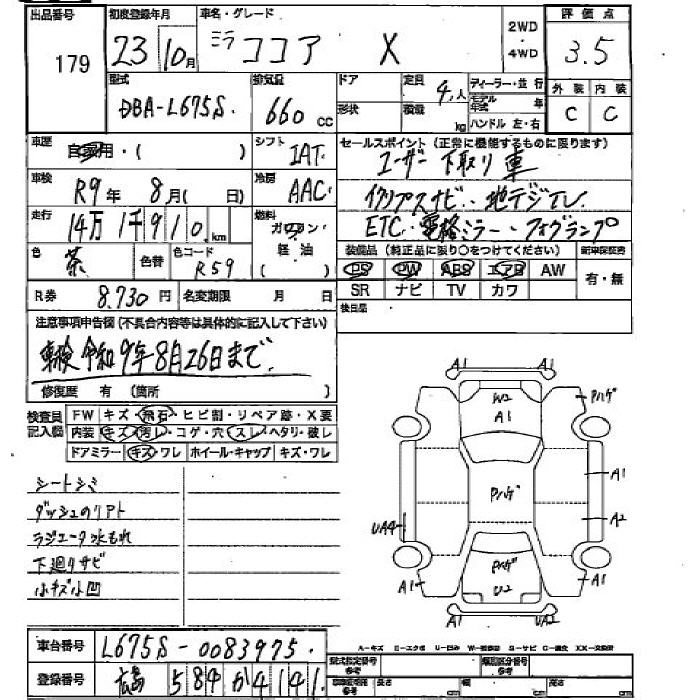 出品番号 初度登録年月 車名・グレード 2WD・4WD 評価点
179 23 10月 ミラココア X 3.5
型式 排気量 ドア 定員 ディーラー・並行 外装 内装
DBA-L675S. 660 cc 形状 積載 4人 kg モデル年式 年 C C
ハンドル 左・右
車歴 自家用・( ) シフト IAT. セールスポイント(正常に機能するものに限ります)
ユーザー下取り車
車検 R9年 8月(日) 冷房 AAC イクリプスナビ・地デジTV
走行 14万1千910.km 燃料 ガソリン・軽油( ) ETC・電格ミラー・フォグランプ
色 茶 色替 色コード R59 装備品(純正品に限り○をつけてください) 新車保証書
PS PW ABS エアB AW 有・無
SR ナビ TV カワ
R券 8,730円 名変期限 月 日 後日品
注意事項申告欄(不具合内容等は具体的に記入して下さい)
車検令和9年8月26日まで.
修復歴 有(箇所 )
検査員記入欄 FW キズ・飛石・ヒビ割・リペア跡・X要
内装 キズ・汚レ・コゲ・穴・スレ・ヘタリ・破レ
ドアミラー キズ・ワレ ホイール・キャップ キズ・ワレ
シートシミ
ダッシュのリアト
ラジエータ水もれ
下廻りサビ
小キズ小凹
A1 A1
W2 A1 Pハゲ
A1
Pハゲ
UA4 A2
Pハゲ
A1 U2 A1
A1 UA2
A-キズ E-エクボ U-凹み W-補修跡 S-サビ C-腐食 XX-交換済
車台番号 L675S-0083975. 型式指定番号 参考 類別区分番号 参考
登録番号 広島 584 か 4141. 長さ cm 幅 cm 高さ cm